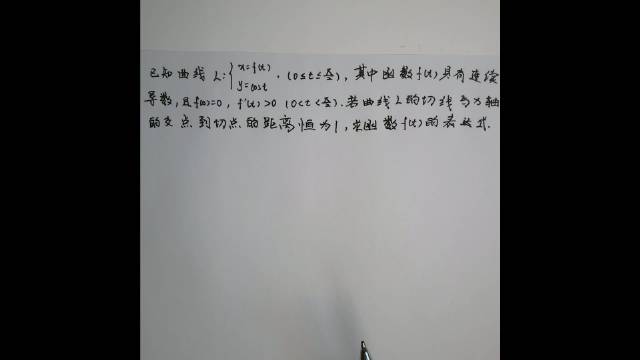 已知曲线 L: { x=f(t) y=cost , (0≤t<π/2), 其中函数f(t)具有连续
导数, 且f(0)=0, f'(t)>0 (0<t<π/2). 若曲线L的切线与x轴
的交点到切点的距离恒为1, 求函数f(t)的表达式.